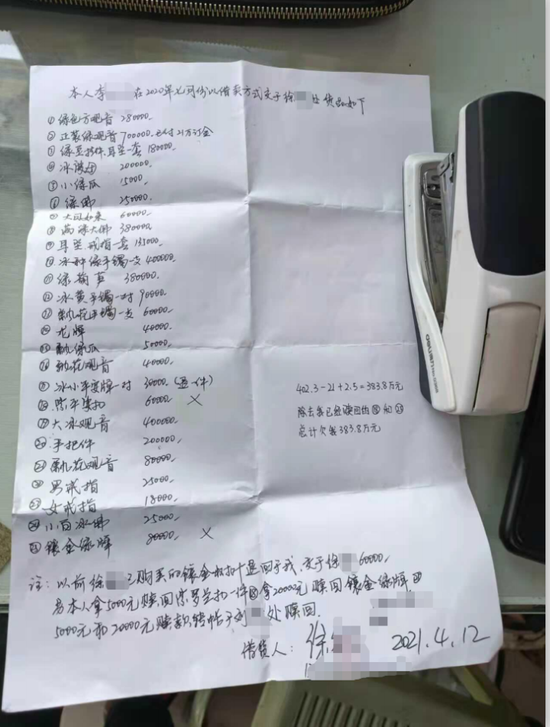 本人李 在2020年七月份以借卖方式交于徐 处货品如下
① 绿色方观音 280000
② 正装绿观音 700000 已付21万订金
③ 180000
④ 200000
⑤ 小绿瓜 15000
⑥ 绿佛 250000
⑦ 大日如来 60000
⑧ 满绿大佛 380000
⑨ 耳坠戒指一套
⑩ 冰种绿手镯一支 400000
⑪ 380000
⑫ 冰黄手镯一对 90000
⑬ 飘花手镯一支 60000
⑭ 龙牌 40000
⑮ 飘绿瓜 50000
⑯ 飘花观音 40000
⑰ 一对 (一件)
⑱ 60000 X
⑲ 大冰观音 400000
⑳ 手把件 200000
㉑ 飘花观音 80000
㉒ 男戒指 25000
㉓ 女戒指 18000
㉔ 小白冰佛 25000
㉕ 镶金绿牌 80000 X
402.3-21+2.5=383.8万元
除去我已经赎回的⑱和㉕
总计欠我383.8万元
注:以前徐 已购买的镶金 退回于我,交于徐 60000
另本人拿5000元赎回紫罗兰扣一件⑱拿20000元赎回镶金绿牌㉕
5000元和20000元赎款转帖子到 处赎回
借货人:徐 2021.4.12